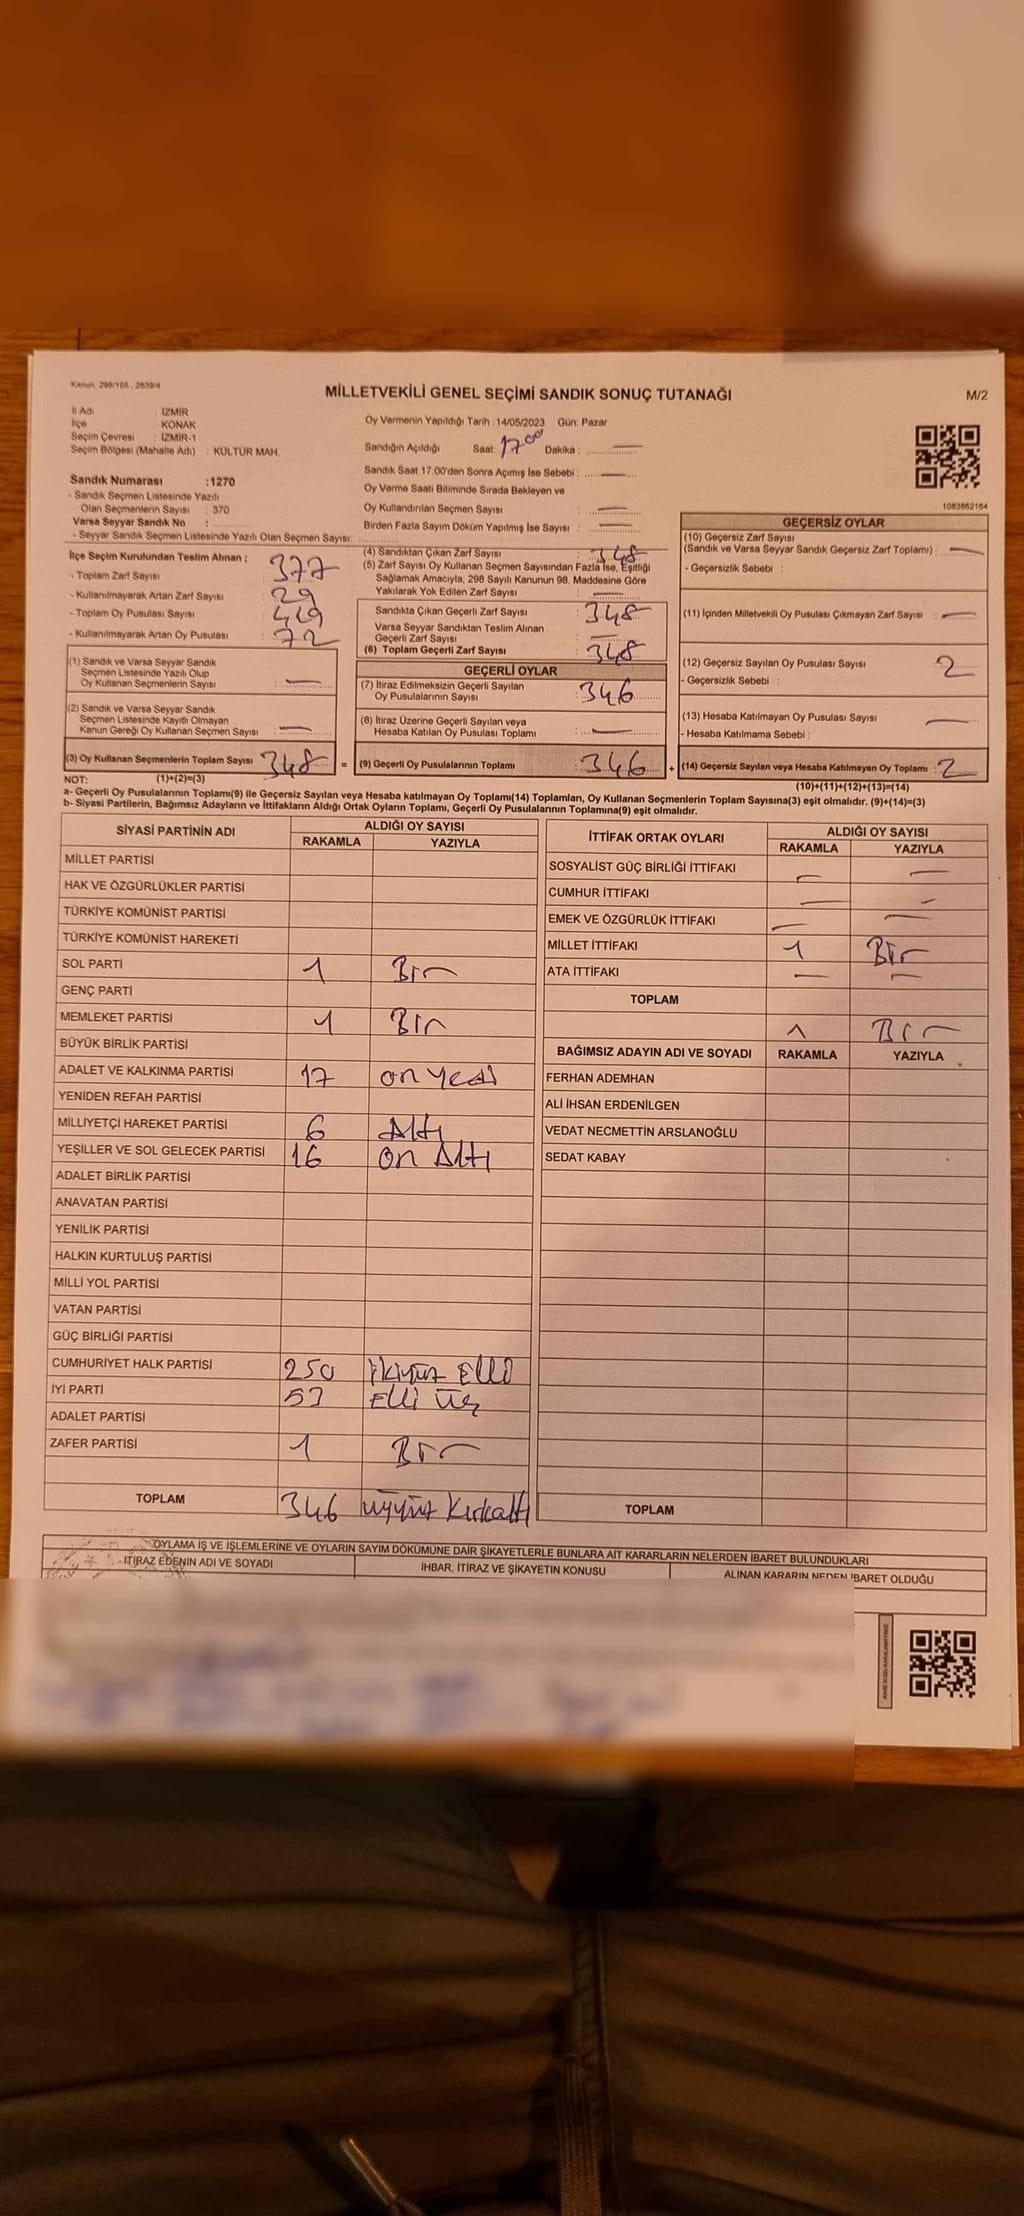 Kanun, 298/105 , 2839/4
MİLLETVEKİLİ GENEL SEÇİMİ SANDIK SONUÇ TUTANAĞI
M/2
İl Adı : İZMİR
İlçe : KONAK
Seçim Çevresi : İZMİR-1
Seçim Bölgesi (Mahalle Adı) : KÜLTÜR MAH.
Oy Vermenin Yapıldığı Tarih : 14/05/2023 Gün: Pazar
Sandığın Açıldığı Saat: 17:00 Dakika : —
Sandık Saat 17.00'den Sonra Açımış İse Sebebi : —
Oy Verme Saati Bitiminde Sırada Bekleyen ve
Oy Kullandırılan Seçmen Sayısı : —
Birden Fazla Sayım Döküm Yapılmış İse Sayısı : —
Sandık Numarası : 1270
- Sandık Seçmen Listesinde Yazılı
Olan Seçmenlerin Sayısı : 370
Varsa Seyyar Sandık No :
- Seyyar Sandık Seçmen Listesinde Yazılı Olan Seçmen Sayısı:
1083862164
İlçe Seçim Kurulundan Teslim Alınan ;
- Toplam Zarf Sayısı : 377
- Kullanılmayarak Artan Zarf Sayısı : 29
- Toplam Oy Pusulası Sayısı : 419
- Kullanılmayarak Artan Oy Pusulası : 72
(1) Sandık ve Varsa Seyyar Sandık
Seçmen Listesinde Yazılı Olup
Oy Kullanan Seçmenlerin Sayısı : —
(2) Sandık ve Varsa Seyyar Sandık
Seçmen Listesinde Kayıtlı Olmayan
Kanun Gereği Oy Kullanan Seçmen Sayısı : —
(3) Oy Kullanan Seçmenlerin Toplam Sayısı 348
(4) Sandıktan Çıkan Zarf Sayısı : 348
(5) Zarf Sayısı Oy Kullanan Seçmen Sayısından Fazla İse, Eşitliği
Sağlamak Amacıyla, 298 Sayılı Kanunun 98. Maddesine Göre
Yakılarak Yok Edilen Zarf Sayısı : —
Sandıkta Çıkan Geçerli Zarf Sayısı : 348
Varsa Seyyar Sandıktan Teslim Alınan
Geçerli Zarf Sayısı : —
(6) Toplam Geçerli Zarf Sayısı : 348
GEÇERLİ OYLAR
(7) İtiraz Edilmeksizin Geçerli Sayılan
Oy Pusulalarının Sayısı : 346
(8) İtiraz Üzerine Geçerli Sayılan veya
Hesaba Katılan Oy Pusulası Toplamı : —
= (9) Geçerli Oy Pusulalarının Toplamı : 346
GEÇERSİZ OYLAR
(10) Geçersiz Zarf Sayısı
(Sandık ve Varsa Seyyar Sandık Geçersiz Zarf Toplamı) : —
- Geçersizlik Sebebi :
(11) İçinden Milletvekili Oy Pusulası Çıkmayan Zarf Sayısı : —
(12) Geçersiz Sayılan Oy Pusulası Sayısı : 2
- Geçersizlik Sebebi :
(13) Hesaba Katılmayan Oy Pusulası Sayısı : —
- Hesaba Katılmama Sebebi :
+ (14) Geçersiz Sayılan veya Hesaba Katılmayan Oy Toplamı : 2
NOT: (1)+(2)=(3)
(10)+(11)+(12)+(13)=(14)
a- Geçerli Oy Pusulalarının Toplamı(9) ile Geçersiz Sayılan veya Hesaba katılmayan Oy Toplamı(14) Toplamları, Oy Kullanan Seçmenlerin Toplam Sayısına(3) eşit olmalıdır. (9)+(14)=(3)
b- Siyasi Partilerin, Bağımsız Adayların ve İttifakların Aldığı Ortak Oyların Toplamı, Geçerli Oy Pusulalarının Toplamına(9) eşit olmalıdır.
SİYASİ PARTİNİN ADI ALDIĞI OY SAYISI
RAKAMLA YAZIYLA
MİLLET PARTİSİ
HAK VE ÖZGÜRLÜKLER PARTİSİ
TÜRKİYE KOMÜNİST PARTİSİ
TÜRKİYE KOMÜNİST HAREKETİ
SOL PARTİ 1 Bir
GENÇ PARTİ
MEMLEKET PARTİSİ 1 Bir
BÜYÜK BİRLİK PARTİSİ
ADALET VE KALKINMA PARTİSİ 17 on yedi
YENİDEN REFAH PARTİSİ
MİLLİYETÇİ HAREKET PARTİSİ 6 Altı
YEŞİLLER VE SOL GELECEK PARTİSİ 16 on Altı
ADALET BİRLİK PARTİSİ
ANAVATAN PARTİSİ
YENİLİK PARTİSİ
HALKIN KURTULUŞ PARTİSİ
MİLLİ YOL PARTİSİ
VATAN PARTİSİ
GÜÇ BİRLİĞİ PARTİSİ
CUMHURİYET HALK PARTİSİ 250 ikiyüz Elli
İYİ PARTİ 53 Elli üç
ADALET PARTİSİ
ZAFER PARTİSİ 1 Bir
TOPLAM 346 üçyüz kırkaltı
İTTİFAK ORTAK OYLARI ALDIĞI OY SAYISI
RAKAMLA YAZIYLA
SOSYALİST GÜÇ BİRLİĞİ İTTİFAKI — —
CUMHUR İTTİFAKI — —
EMEK VE ÖZGÜRLÜK İTTİFAKI — —
MİLLET İTTİFAKI 1 Bir
ATA İTTİFAKI — —
TOPLAM
1 Bir
BAĞIMSIZ ADAYIN ADI VE SOYADI RAKAMLA YAZIYLA
FERHAN ADEMHAN
ALİ İHSAN ERDENİLGEN
VEDAT NECMETTİN ARSLANOĞLU
SEDAT KABAY
TOPLAM
OYLAMA İŞ VE İŞLEMLERİNE VE OYLARIN SAYIM DÖKÜMÜNE DAİR ŞİKAYETLERLE BUNLARA AİT KARARLARIN NELERDEN İBARET BULUNDUKLARI
İTİRAZ EDENİN ADI VE SOYADI İHBAR, İTİRAZ VE ŞİKAYETİN KONUSU ALINAN KARARIN NEDEN İBARET OLDUĞU